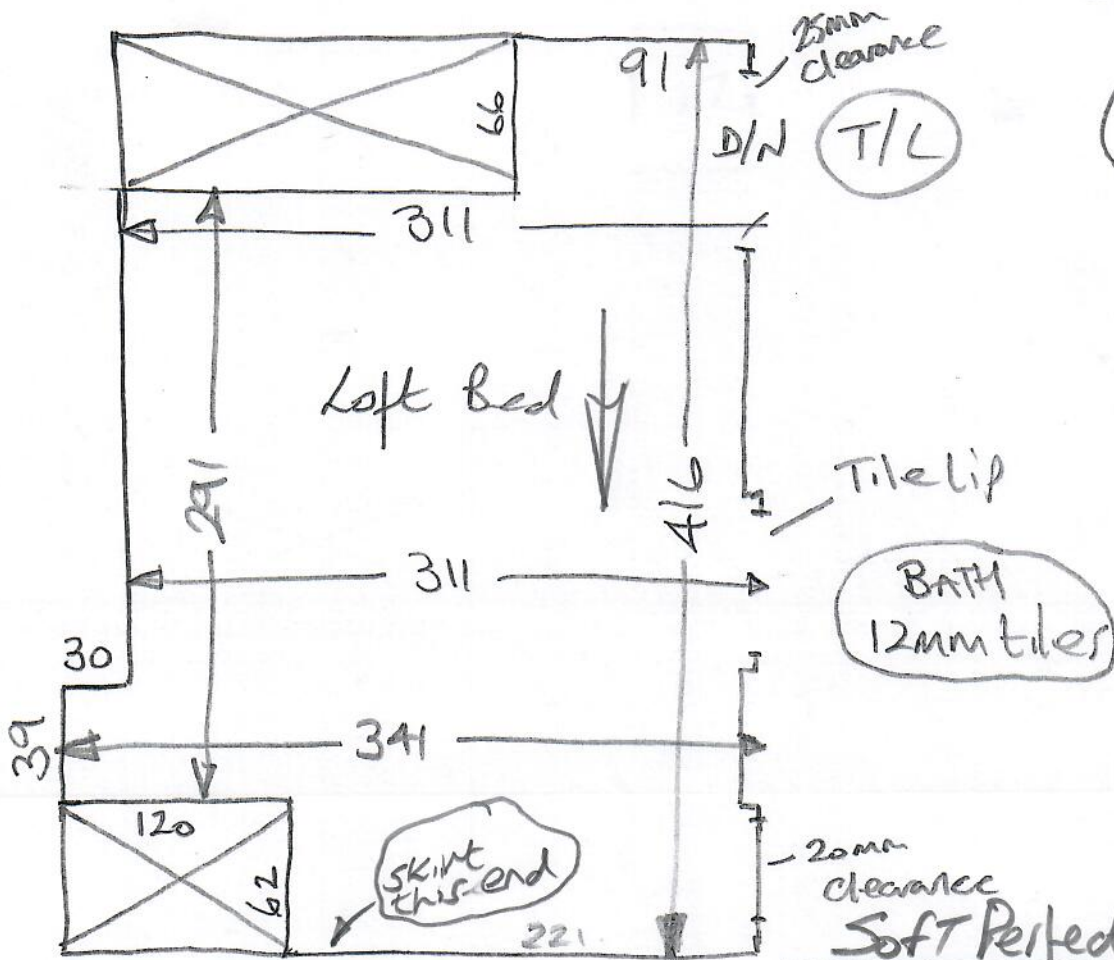 25mm
clearance
91
66
D/N
T/L
311
Loft Bed
291
416
Tile lip
311
BATH
12mm tiles
30
39
341
120
62
skirt
this end
20mm
clearance
221
Soft Perfec